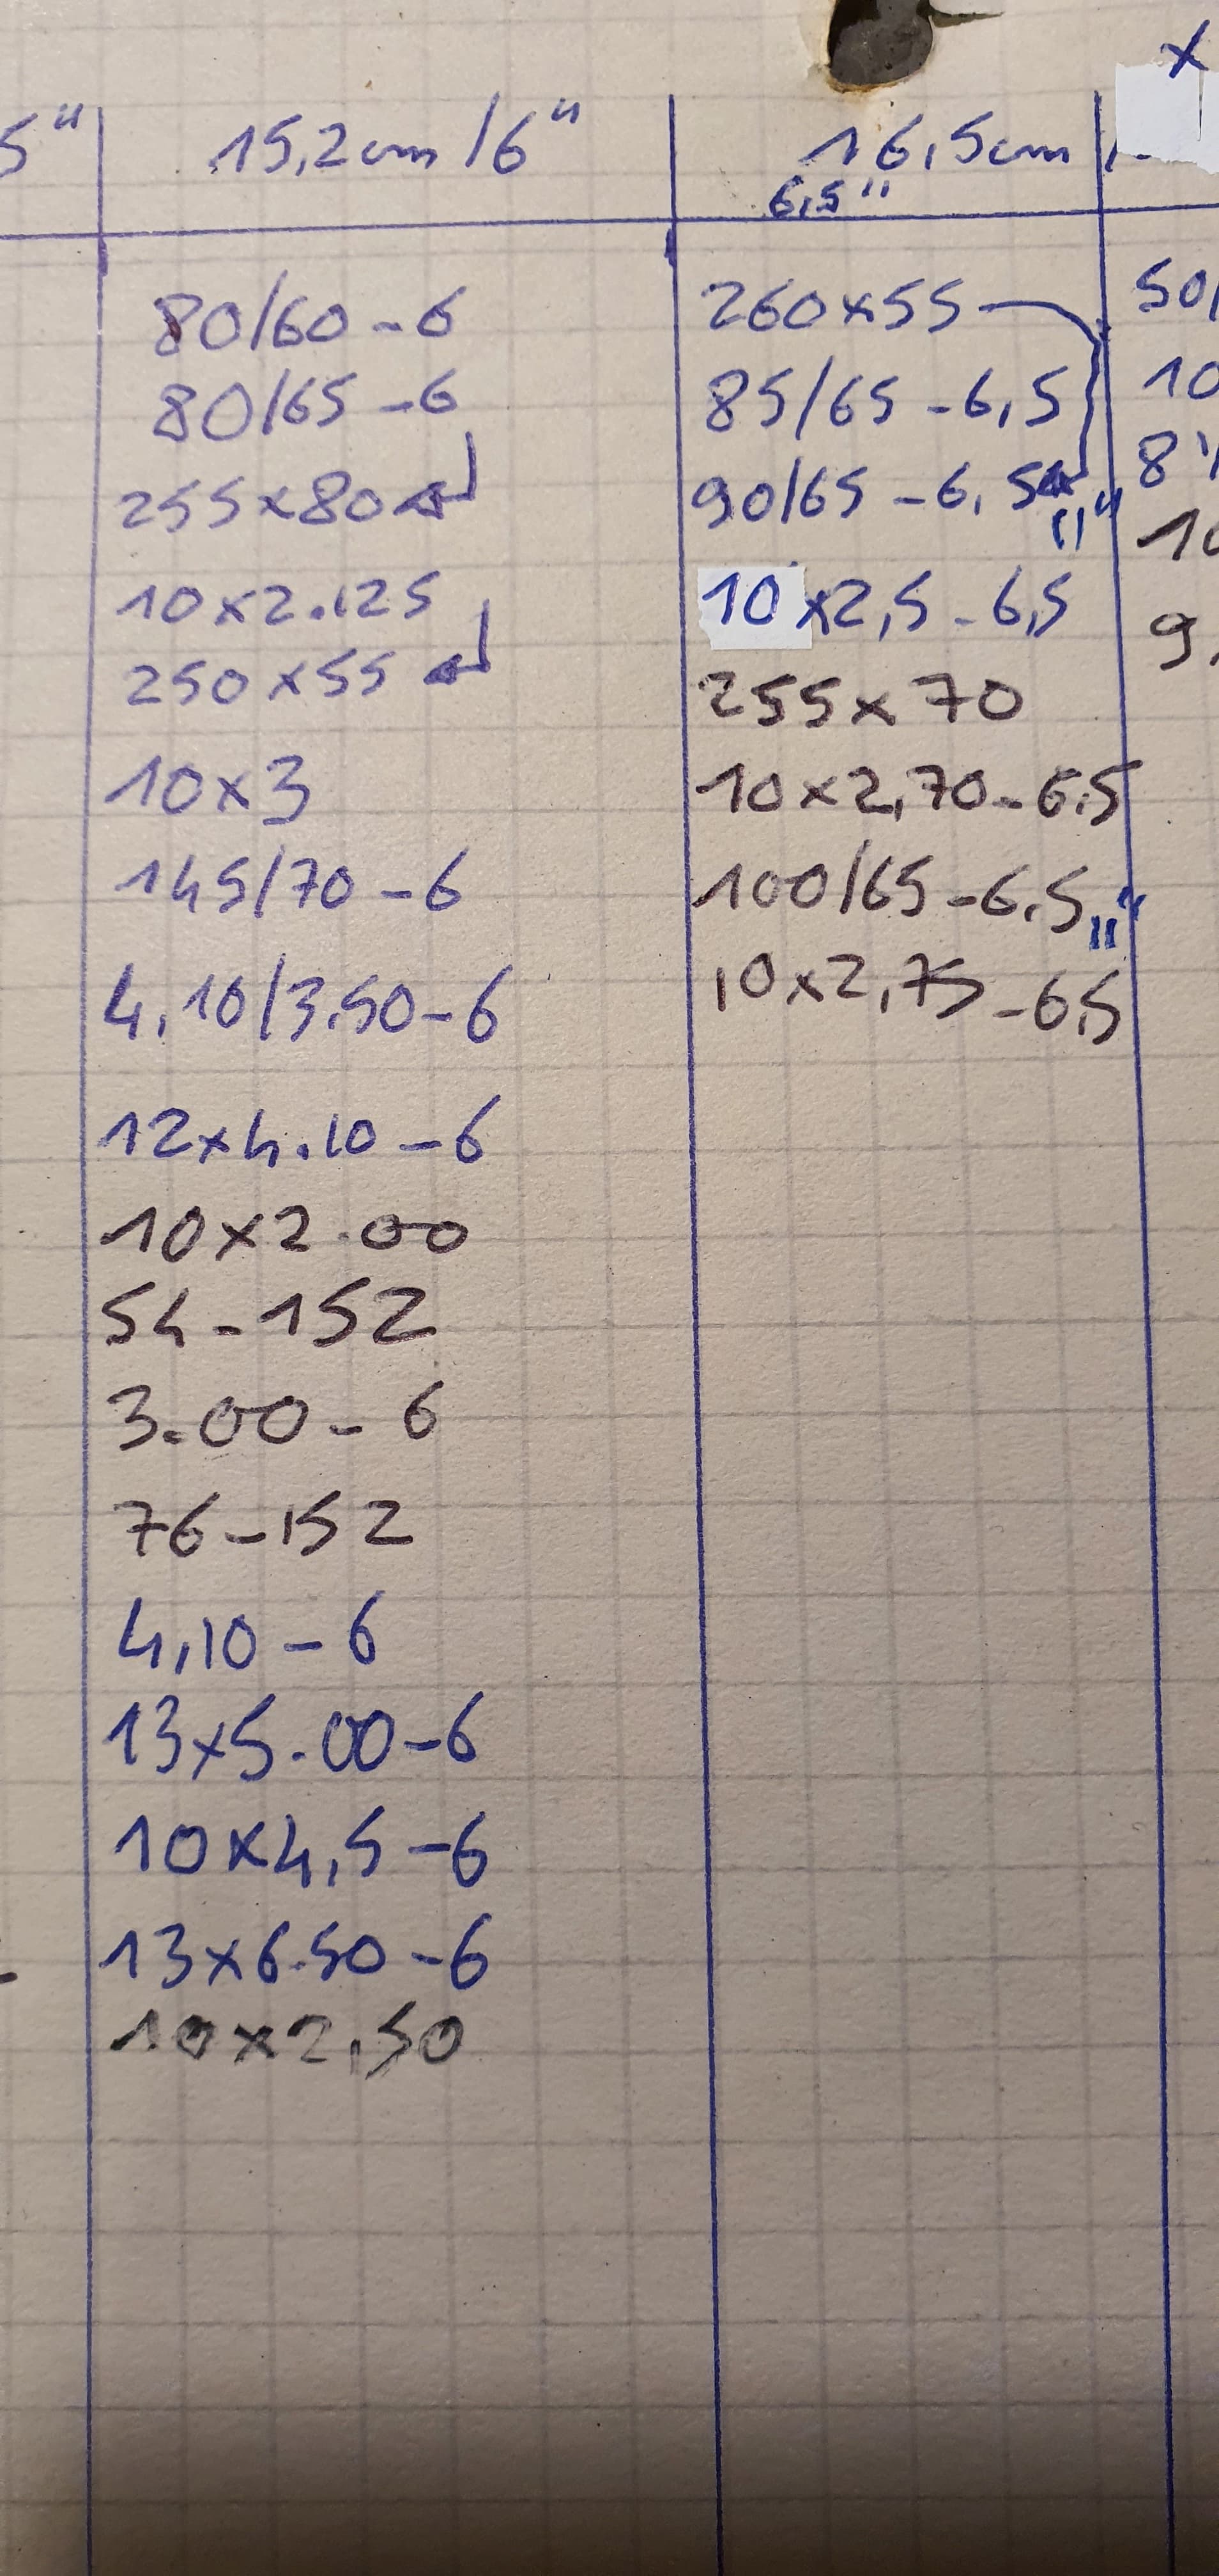 5"
15,2cm/6"
80/60-6
80/65-6
255x80
10x2.125
250x55
10x3
145/70-6
4,10/3.50-6
12x4.10-6
10x2.00
54-152
3.00-6
76-152
4,10-6
13x5.00-6
10x4,5-6
13x6.50-6
10x2,50
16,5cm
6,5"
260x55
85/65-6,5
90/65-6,5
10x2,5-6,5
255x70
10x2,70-6.5
100/65-6.5
10x2,75-6,5
x
50/
10
8"
10
9.